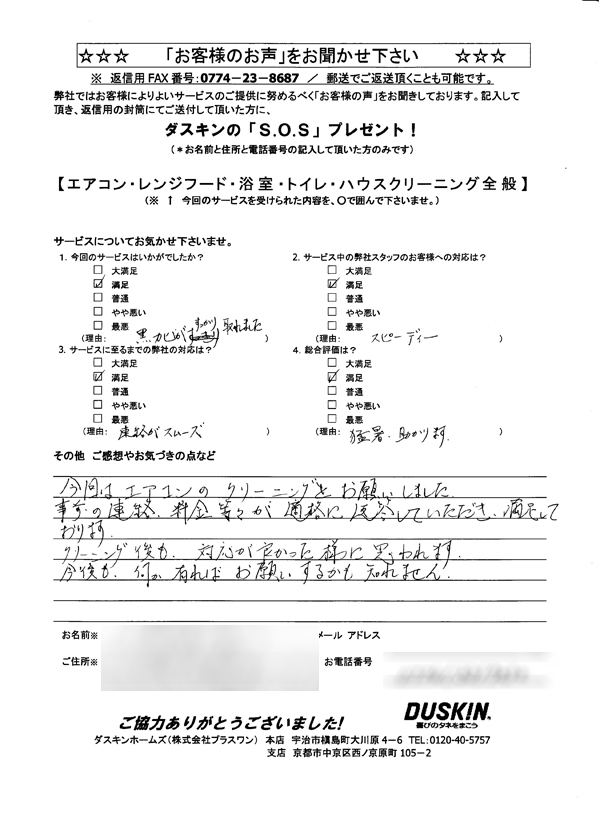 ☆☆☆ 「お客様のお声」をお聞かせ下さい ☆☆☆
※ 返信用FAX番号:0774-23-8687 / 郵送でご返送頂くことも可能です。
弊社ではお客様によりよいサービスのご提供に努めるべく「お客様の声」をお聞きしております。記入して
頂き、返信用の封筒にてご送付して頂いた方に、
ダスキンの「S.O.S」プレゼント!
(*お名前と住所と電話番号の記入して頂いた方のみです)
【エアコン・レンジフード・浴室・トイレ・ハウスクリーニング全般】
(※ ↑ 今回のサービスを受けられた内容を、〇で囲んで下さいませ。)
サービスについてお気かせ下さいませ。
1. 今回のサービスはいかがでしたか?
□ 大満足
☑ 満足
□ 普通
□ やや悪い
□ 最悪
(理由: 黒カビがすっかり取れました )
2. サービス中の弊社スタッフのお客様への対応は?
□ 大満足
☑ 満足
□ 普通
□ やや悪い
□ 最悪
(理由: スピーディー )
3. サービスに至るまでの弊社の対応は?
□ 大満足
☑ 満足
□ 普通
□ やや悪い
□ 最悪
(理由: 連絡がスムーズ )
4. 総合評価は?
□ 大満足
☑ 満足
□ 普通
□ やや悪い
□ 最悪
(理由: 猛暑、助かります。 )
その他 ご感想やお気づきの点など
今回はエアコンのクリーニングをお願いしました。
事前の連絡、料金等々が適格に返答していただき、満足して
おります。
クリーニング後も、対応が良かった様に思われます。
今後も、何か有ればお願いするかも知れません。
お名前※
メール アドレス
ご住所※
お電話番号
ご協力ありがとうございました!
DUSKIN
喜びのタネをまこう
ダスキンホームズ(株式会社プラスワン) 本店 宇治市槇島町大川原4-6 TEL:0120-40-5757
支店 京都市中京区西ノ京原町105-2